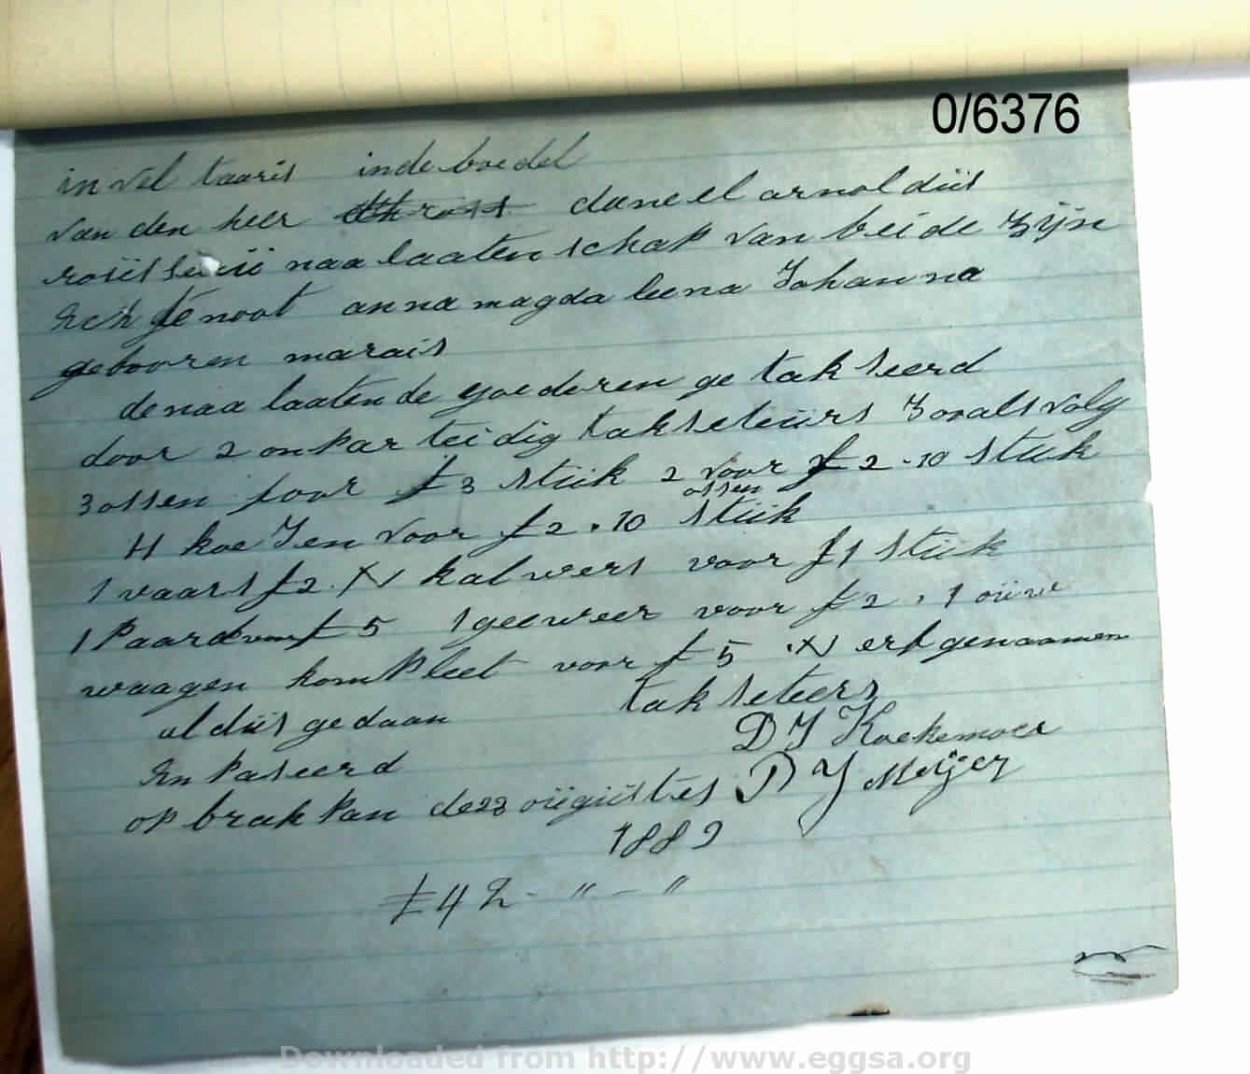 0/6376
invel taaris inde boedel
van den heer daneel arnoldüs
naa laatenschap van beide zijn
Echtgenoot anna magda leena Johanna
gebooren marais
denaa laatende goederen getakseerd
door 2 onpar teidig takseteürs Zooalsvolg
3 ossen foor £3 stük 2 ossen voor £2-10 stük
4 koeJen voor £2.10 stük
1 vaars £2. kalwers voor £1 stük
1 Paard voor £5 1 geeweer voor £2. 1 oüw
waagen kompleet voor £5 erfgenaamen
al düs gedaan takseteers
En Paseerd D J Koekemoer
op brakpan de 28 oügüstes P J Meijer
1889
£42-"-"
Downloaded from http://www.eggsa.org